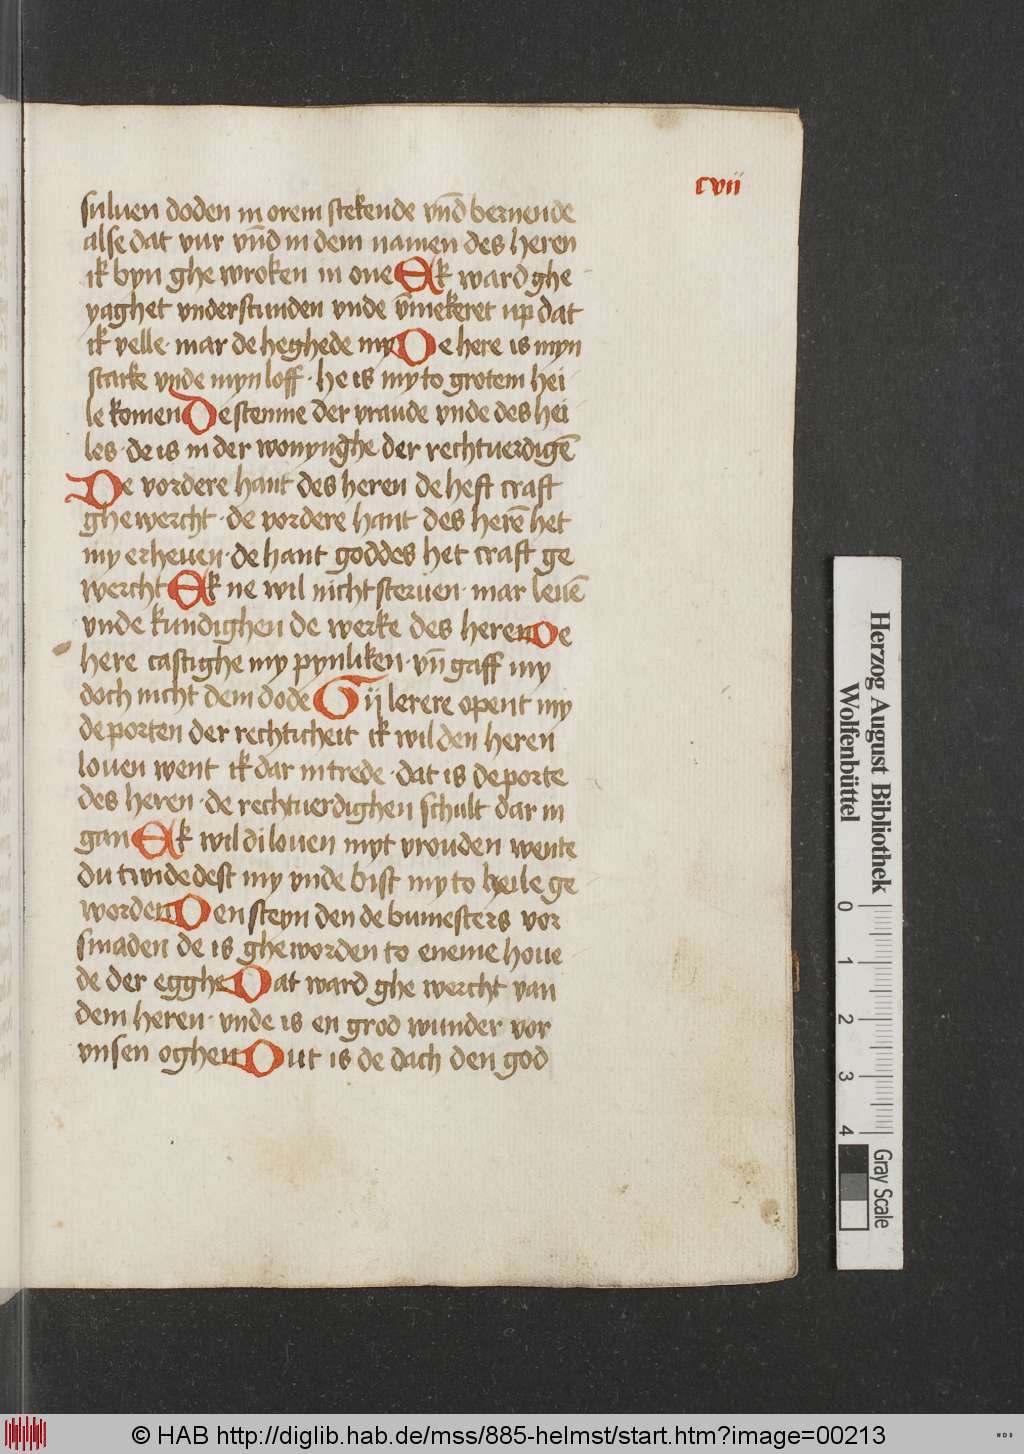 cvii
suluen doden in orem stekende vn̄d bernende
alse dat vur vn̄d in dem namen des heren
ik byn ghe wroken in one Ek ward ghe
yaghet vnderstunden vnde v̄mekeret up dat
ik velle· mar de heghede my De here is myn
starke vnde myn loff · he is my to grotem hei
le komen De stemme der vraude vnde des hei
les· de is in der wonynghe der rechtuerdigē
De vordere hant des heren de heft craft
ghe wercht · de vordere hant des herē het
my erheuen· de hant goddes het craft ge
wercht Ek ne wil nicht steruen· mar leuē
vnde kundighen de werke des heren De
here castighe my pynliken· vn̄ gaff my
doch nicht dem dode Gij lerere opent my
de porten der rechticheit ik wil den heren
louen went ik dar in trede · dat is de porte
des heren · de rechtuerdighen schult dar in
gan Ek wil di louen myt vrouden wente
du twidedest my vnde bist my to heile ge
worden Den steyn den de bumesters vor
smaden de is ghe worden to eneme houe
de der egghe Dat ward ghe wercht van
dem heren· vnde is en grod wunder vor
vnsen oghen Dut is de dach den god
Herzog August Bibliothek
Wolfenbüttel
0 1 2 3 4
Gray Scale
© HAB http://diglib.hab.de/mss/885-helmst/start.htm?image=00213